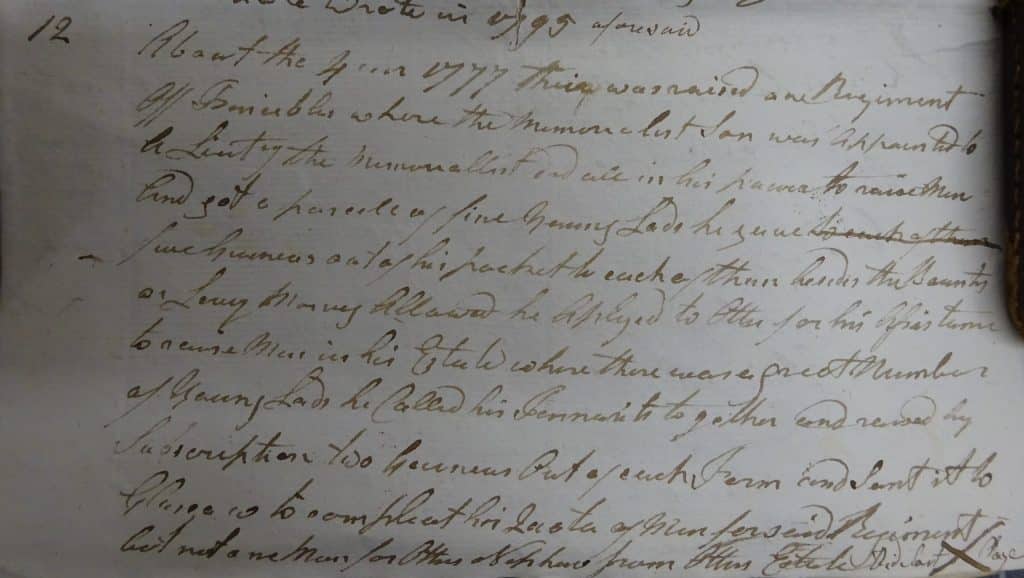 wrote in 1795 aforesaid
12
About the year 1777 there was raised ane Regiment
off Fencibles where the Memorialist Son was Appointed to
be Lieut the Memoriallist did all in his power to raise Men
And got a parcell of fine Young Lads he gave to each of them
five Guineas out of his pocket to each of them besides the Bounty
or Levy Money Allowed he Aplyed to Otter for his Assistance
to raise Men in his Estate where there was a great Number
of Young Lads he Called his Tennants together and raised by
Subscription two Guineas out of each Farm and Sent it to
Glasgow to compleat his Quota of Men for said Regiment
but not one Man for Otters Nephew from Otter Estate X Page